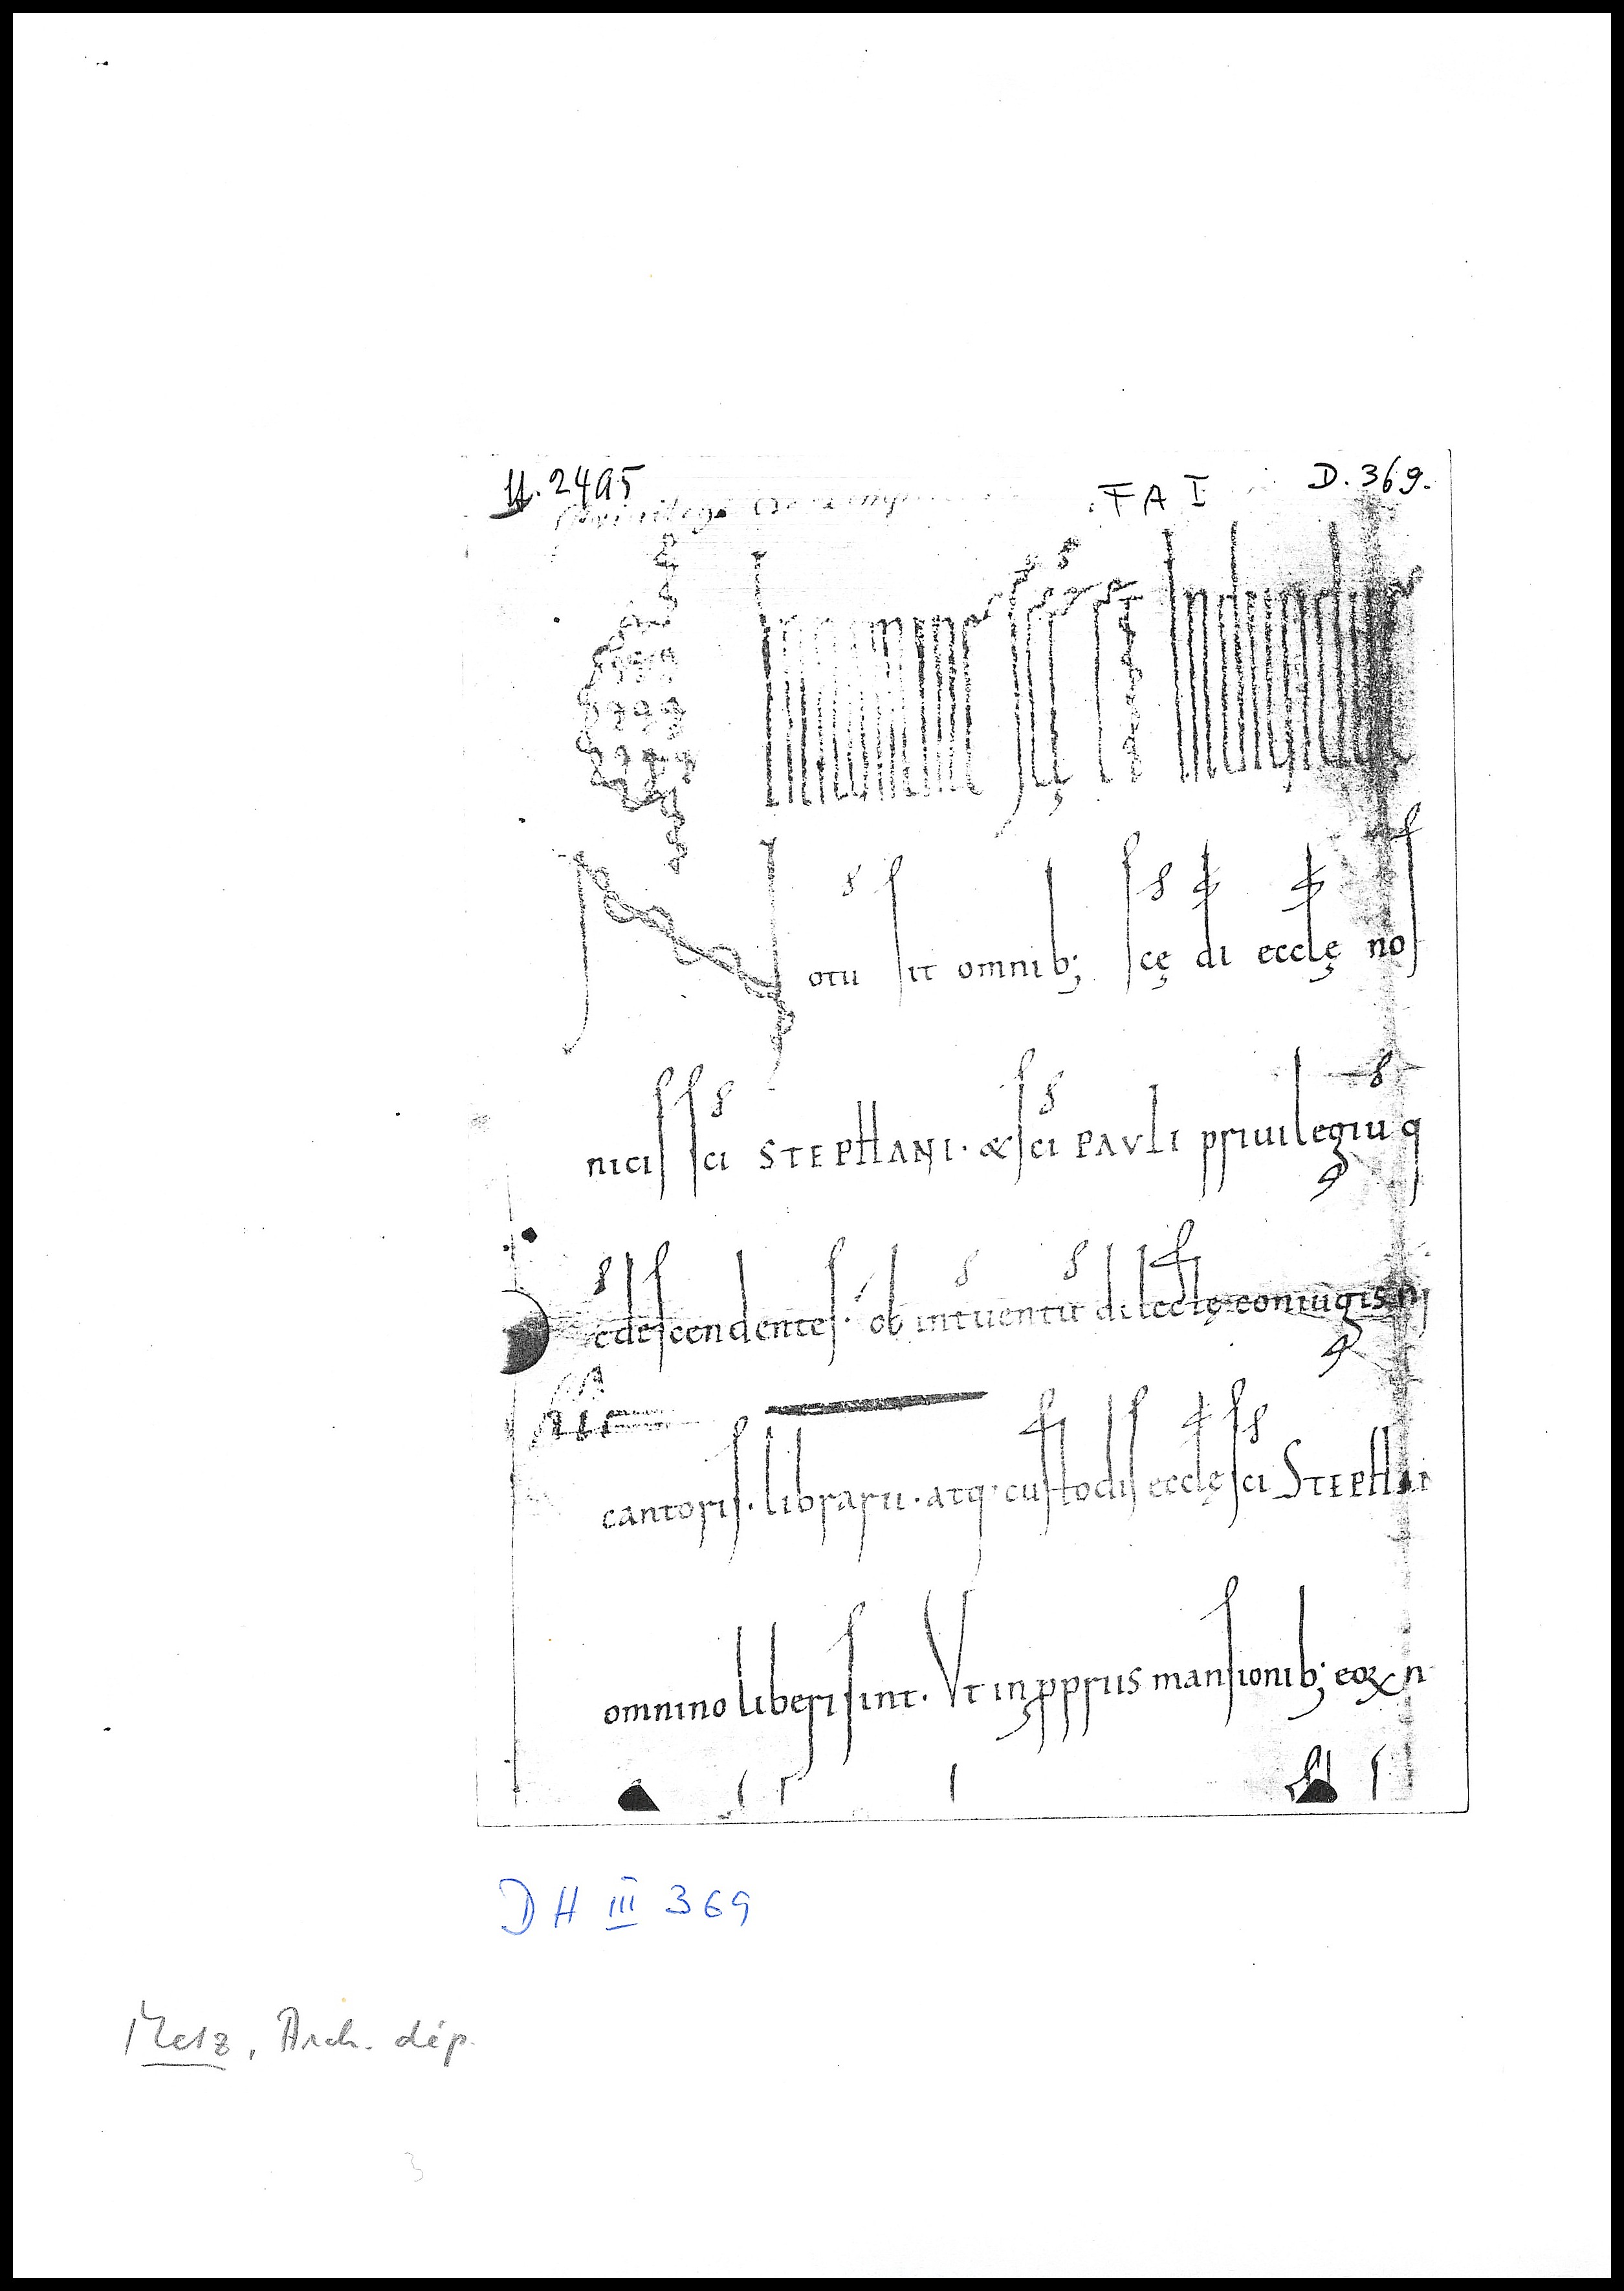 U. 2495 FAI D. 369.
In nomine scę et Indiuiduę
Notū sit omnib; scę dī ecclę nos
nicis sci STEPHANI · & sci PAVLI priuilegiū q
cdescendentes · ob intuentū dilectę coniugis n
cantoris · librarii · atq; custodis ecclę sci STEPHAI
omnino liberi sint. Vt in ꝓpriis mansionib; eoꝝ n
DH III 369
Metz, Arch. dép.
3